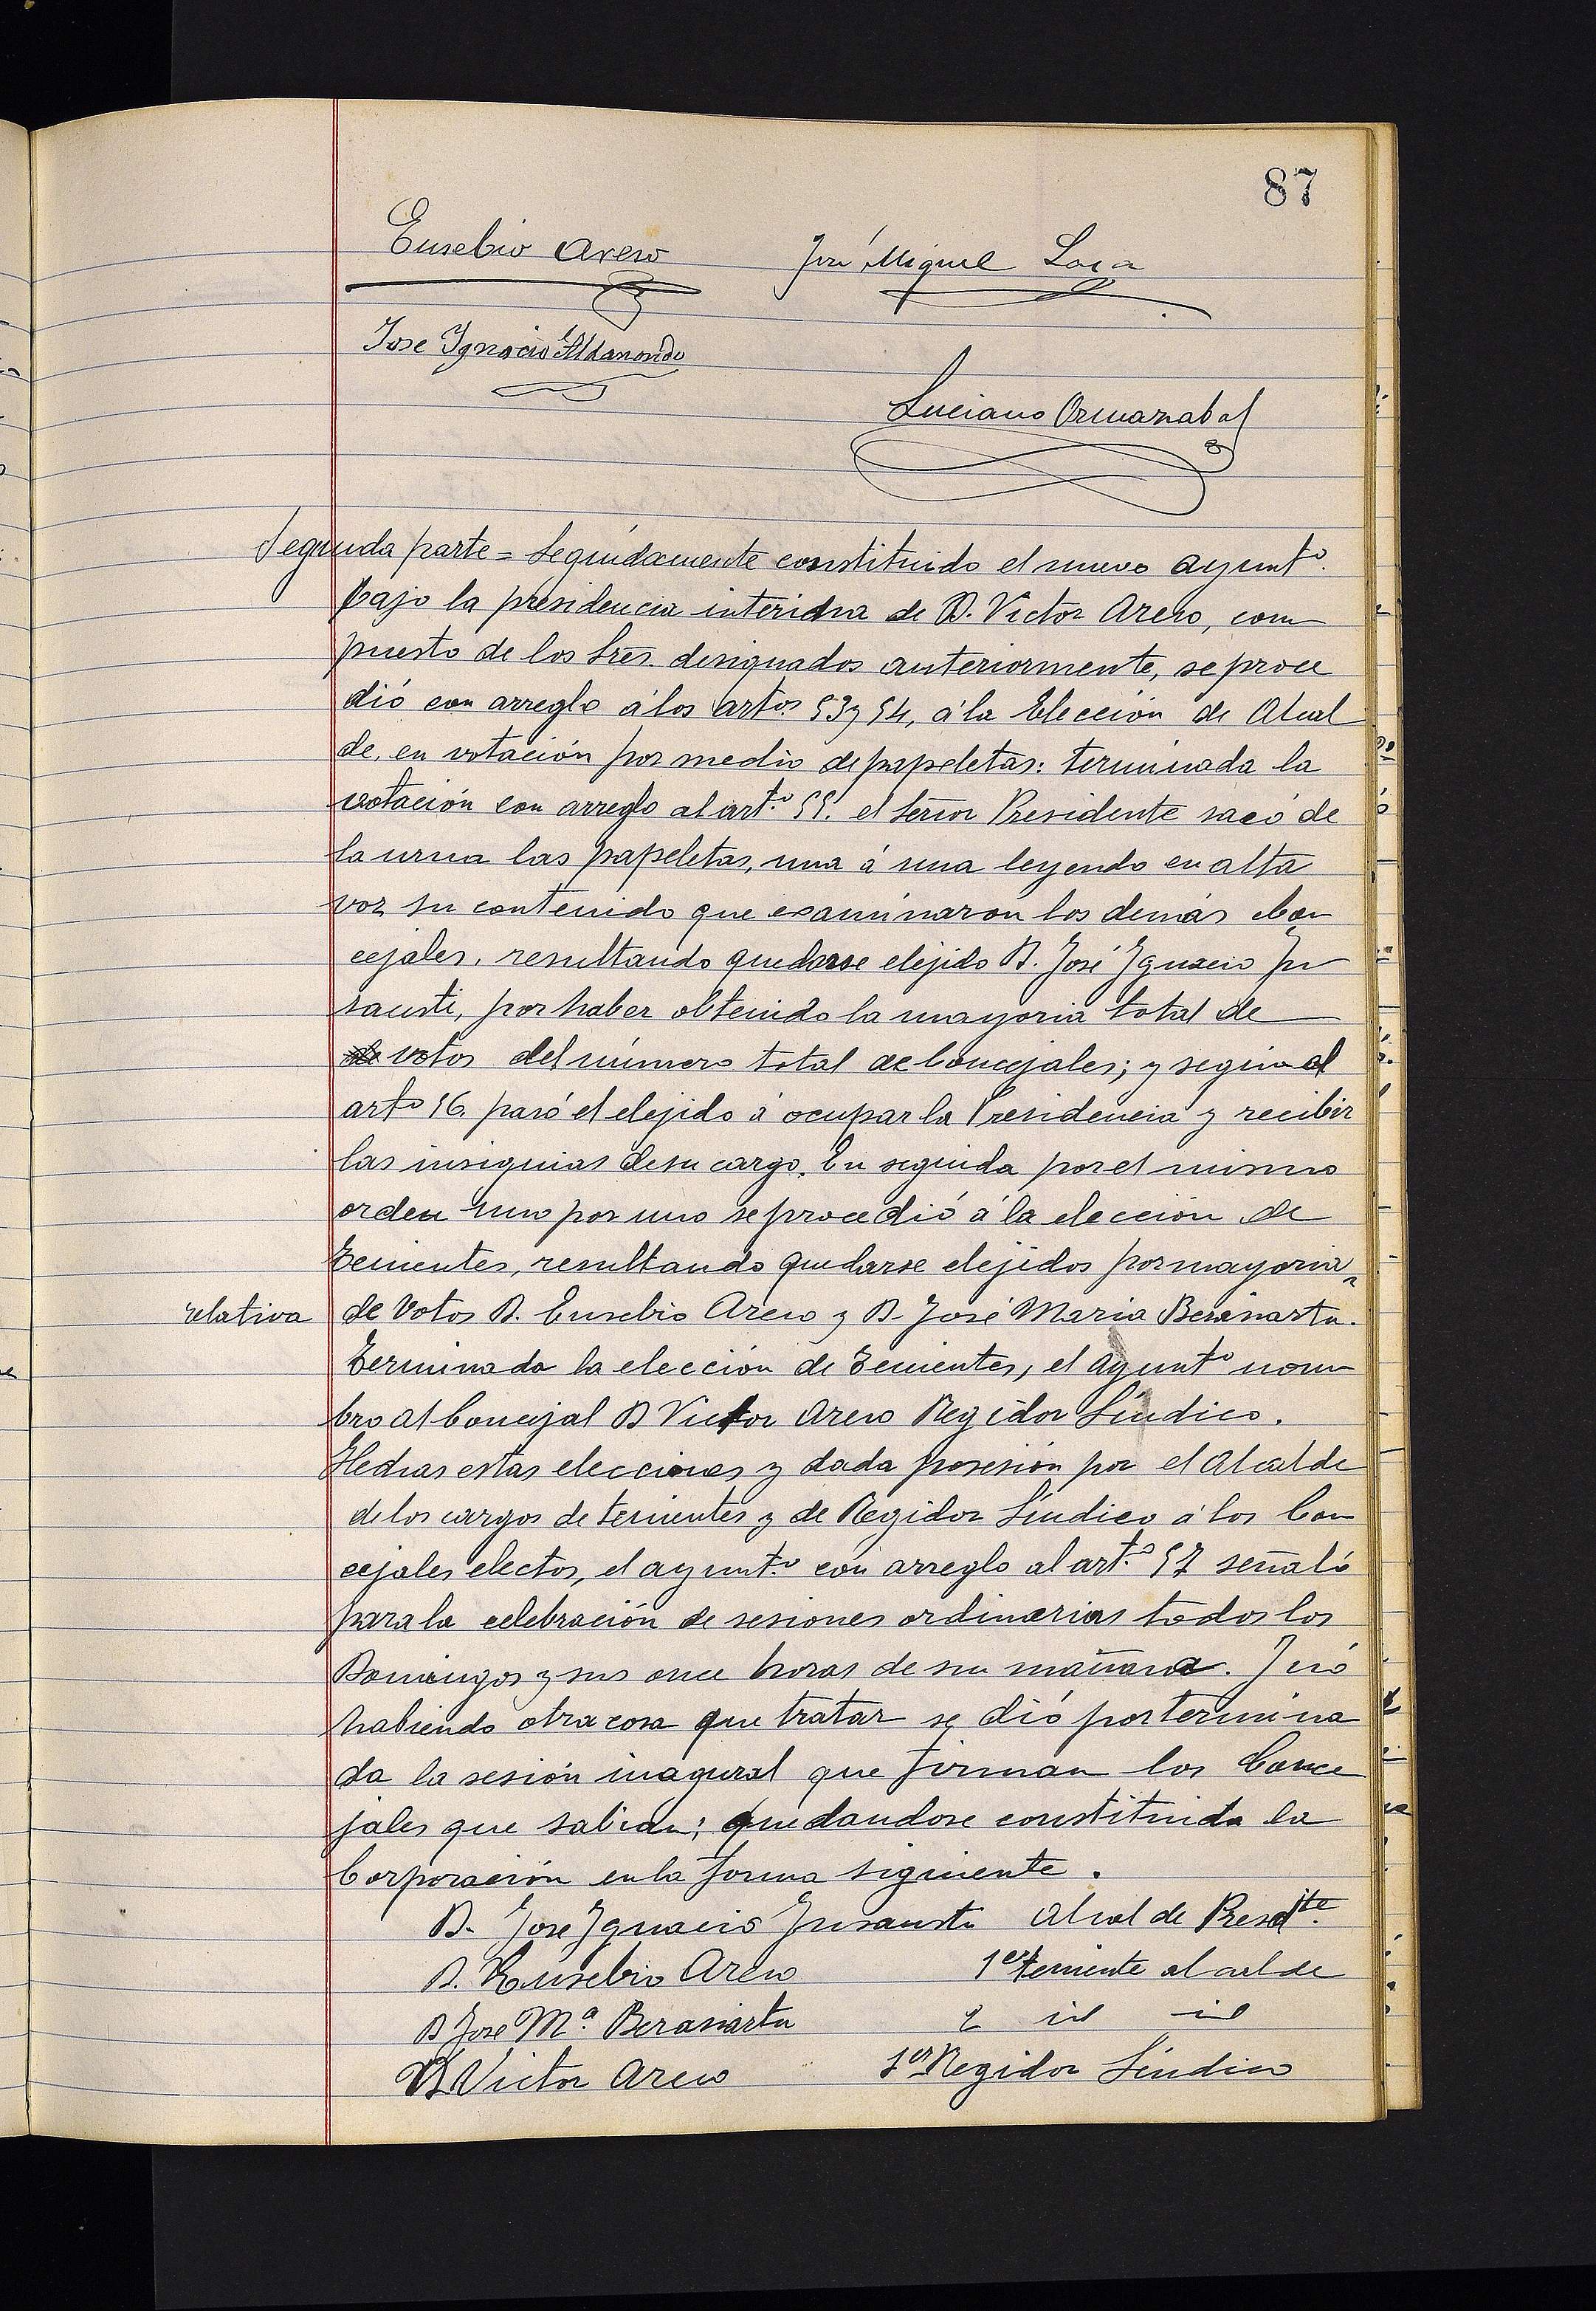 87
Eusebio Areso José Miguel
Jose Ygnacio Aldanondo
Luciano Ormazabal
Segunda parte = Seguidamente constituido el nuevo ayunt.º
bajo la presidencia interina de D. Victor Areso, com
puesto de los Sres. designados anteriormente, se proce
dió con arreglo á los artos. 53 y 54, á la Elección de Alcal
de, en votación por medio de papeletas: terminada la
votación con arreglo al art.º 55. el Señor Presidente sacó de
la urna las papeletas, una á una leyendo en alta
voz su contenido que examinaron los demás Con
cejales, resultando quedarse elejido D. José Ygnacio Yn
sausti, por haber obtenido la mayoria total de
de votos del número total de Concejales; y según el
artº 56. pasó el elejido á ocupar la Presidencia y recibir
las insignias de su cargo. En seguida por el mismo
orden uno por uno se procedió á la elección de
Tenientes, resultando quedarse elejidos por mayoria
relativa de Votos D. Eusebio Areso y D. José Maria Berasiartu.
Terminada la elección de Tenientes, el Ayuntº nom
bro al Concejal D Victor Areso Regidor Síndico.
Hechas estas elecciones y dada posesión por el Alcalde
de los cargos de tenientes y de Regidor Síndico á los Con
cejales electos, el ayunt.º con arreglo al art.º 57 señaló
para la celebración de sesiones ordinarias todos los
Domingos y sus once horas de su mañana. Y no
habiendo otra cosa que tratar se dió por termina
da la sesión inagural que firman los Conce
jales que sabian; quedandose constituida la
Corporación en la forma siguiente.
D. José Ygnacio Ynsausti Alcalde Presdte.
D. Eusebio Areso 1er teniente alcalde
D Jose Mª. Berasiartu 2 id id
D Victor Areso 1er Regidor Síndico